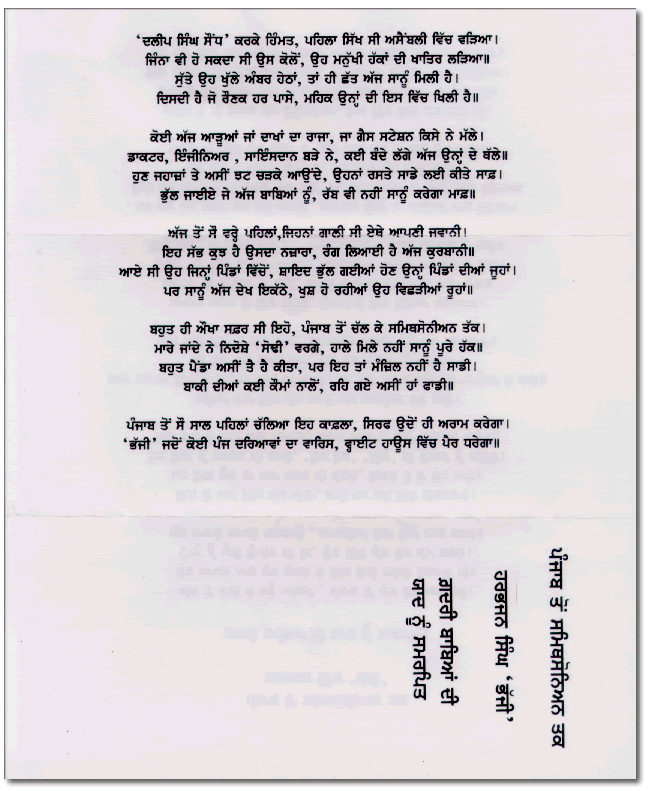 ‘ਦਲੀਪ ਸਿੰਘ ਸੌਂਧ’ ਕਰਕੇ ਹਿੰਮਤ, ਪਹਿਲਾ ਸਿੱਖ ਸੀ ਅਸੈਂਬਲੀ ਵਿੱਚ ਵੜਿਆ।
ਜਿੰਨਾ ਵੀ ਹੋ ਸਕਦਾ ਸੀ ਉਸ ਕੋਲੋਂ, ਉਹ ਮਨੁੱਖੀ ਹੱਕਾਂ ਦੀ ਖਾਤਿਰ ਲੜਿਆ॥
ਸੁੱਤੇ ਉਹ ਖੁੱਲੇ ਅੰਬਰ ਹੇਠਾਂ, ਤਾਂ ਹੀ ਛੱਤ ਅੱਜ ਸਾਨੂੰ ਮਿਲੀ ਹੈ।
ਦਿਸਦੀ ਹੈ ਜੋ ਰੌਣਕ ਹਰ ਪਾਸੇ, ਮਹਿਕ ਉਨ੍ਹਾਂ ਦੀ ਇਸ ਵਿੱਚ ਖਿਲੀ ਹੈ॥
ਕੋਈ ਅੱਜ ਆੜੂਆਂ ਜਾਂ ਦਾਖਾਂ ਦਾ ਰਾਜਾ, ਜਾ ਗੈਸ ਸਟੇਸ਼ਨ ਕਿਸੇ ਨੇ ਮੱਲੇ।
ਡਾਕਟਰ, ਇੰਜੀਨਿਅਰ , ਸਾਇੰਸਦਾਨ ਬੜੇ ਨੇ, ਕਈ ਬੰਦੇ ਲੱਗੇ ਅੱਜ ਉਨ੍ਹਾਂ ਦੇ ਥੱਲੇ॥
ਹੁਣ ਜਹਾਜ਼ਾਂ ਤੇ ਅਸੀਂ ਝਟ ਚੜਕੇ ਆਉਂਦੇ, ਉਹਨਾਂ ਰਸਤੇ ਸਾਡੇ ਲਈ ਕੀਤੇ ਸਾਫ਼।
ਭੁੱਲ ਜਾਈਏ ਜੇ ਅੱਜ ਬਾਬਿਆਂ ਨੂੰ, ਰੱਬ ਵੀ ਨਹੀਂ ਸਾਨੂੰ ਕਰੇਗਾ ਮਾਫ਼॥
ਅੱਜ ਤੋਂ ਸੌ ਵਰ੍ਹੇ ਪਹਿਲਾਂ,ਜਿਹਨਾਂ ਗਾਲੀ ਸੀ ਏਥੇ ਆਪਣੀ ਜਵਾਨੀ।
ਇਹ ਸੱਭ ਕੁਝ ਹੈ ਉਸਦਾ ਨਜ਼ਾਰਾ, ਰੰਗ ਲਿਆਈ ਹੈ ਅੱਜ ਕੁਰਬਾਨੀ॥
ਆਏ ਸੀ ਉਹ ਜਿਨ੍ਹਾਂ ਪਿੰਡਾਂ ਵਿੱਚੋਂ, ਸ਼ਾਇਦ ਭੁੱਲ ਗਈਆਂ ਹੋਣ ਉਨ੍ਹਾਂ ਪਿੰਡਾਂ ਦੀਆਂ ਜੂਹਾਂ।
ਪਰ ਸਾਨੂੰ ਅੱਜ ਦੇਖ ਇਕੱਠੇ, ਖੁਸ਼ ਹੋ ਰਹੀਆਂ ਉਹ ਵਿਛੜੀਆਂ ਰੂਹਾਂ॥
ਬਹੁਤ ਹੀ ਔਖਾ ਸਫ਼ਰ ਸੀ ਇਹੋ, ਪੰਜਾਬ ਤੋਂ ਚੱਲ ਕੇ ਸਮਿਥਸੋਨੀਅਨ ਤੱਕ।
ਮਾਰੇ ਜਾਂਦੇ ਨੇ ਨਿਦੋਸ਼ੇ ‘ਸੋਢੀ’ ਵਰਗੇ, ਹਾਲੇ ਮਿਲੇ ਨਹੀਂ ਸਾਨੂੰ ਪੂਰੇ ਹੱਕ॥
ਬਹੁਤ ਪੈਂਡਾ ਅਸੀਂ ਤੈ ਹੈ ਕੀਤਾ, ਪਰ ਇਹ ਤਾਂ ਮੰਜ਼ਿਲ ਨਹੀਂ ਹੈ ਸਾਡੀ।
ਬਾਕੀ ਦੀਆਂ ਕਈ ਕੌਮਾਂ ਨਾਲੋਂ, ਰਹਿ ਗਏ ਅਸੀਂ ਹਾਂ ਫਾਡੀ॥
ਪੰਜਾਬ ਤੋਂ ਸੌ ਸਾਲ ਪਹਿਲਾਂ ਚੱਲਿਆ ਇਹ ਕਾਫ਼ਲਾ, ਸਿਰਫ ਉਦੋਂ ਹੀ ਅਰਾਮ ਕਰੇਗਾ।
‘ਭੱਜੀ’ ਜਦੋਂ ਕੋਈ ਪੰਜ ਦਰਿਆਵਾਂ ਦਾ ਵਾਰਿਸ, ਵ੍ਹਾਈਟ ਹਾਊਸ ਵਿੱਚ ਪੈਰ ਧਰੇਗਾ॥
ਪੰਜਾਬ ਤੋਂ ਸਮਿਥਸੋਨਿਅਨ ਤਕ
ਹਰਭਜਨ ਸਿੰਘ ‘ਭੱਜੀ’
ਗਦਰੀ ਬਾਬਿਆਂ ਦੀ
ਯਾਦ ਨੂੰ ਸਮਰਪਿਤ